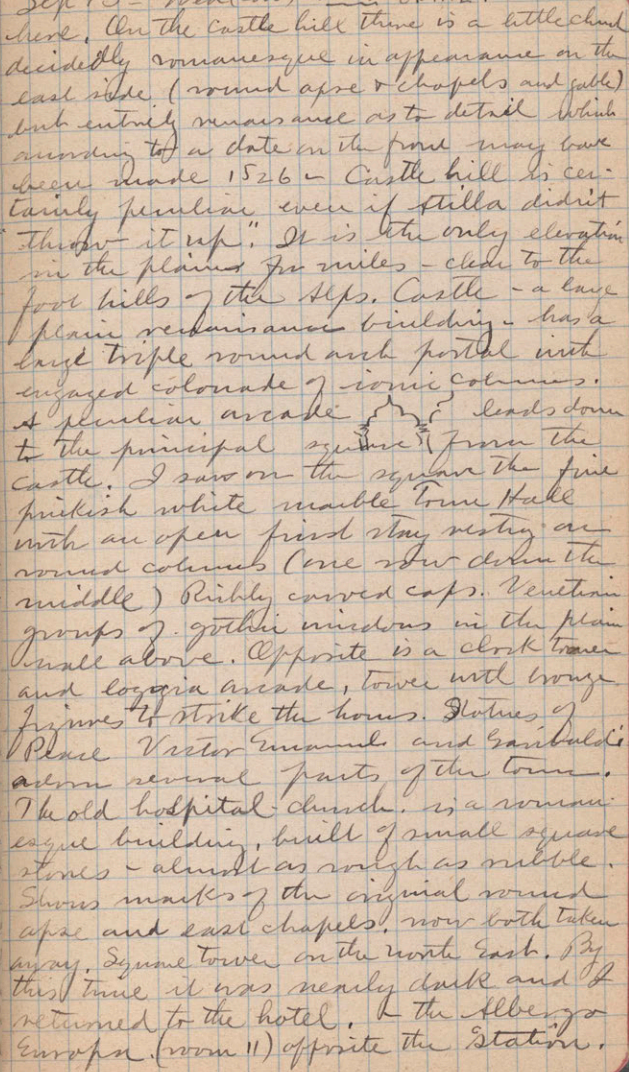 here. On the castle hill there is a little church
decidedly romanesque in appearance on the
east side (round apse & chapels and gable)
but entirely renaisance as to detail which
according to a date on the front may have
been made 1526 - Castle hill is cer-
tainly peculiar even if Attila didn't
"throw it up". It is the only elevation
in the plains for miles - clear to the
foot hills of the Alps. Castle - a large
plain renaisance building - has a
large triple round arch portal with
engaged colonade of ionic columns.
A peculiar arcade leads down
to the principal square from the
castle. I saw on the square the fine
pinkish white marble Town Hall
with an open first story resting on
round columns (one row down the
middle) Richly carved caps. Venetian
groups of gothic windows in the plain
wall above. Opposite is a clock tower
and loggia arcade, tower with bronze
figures to strike the hours. Statues of
Peace Victor Emanuel and Garibaldi
adorn several parts of the town.
The old hospital-church. is a roman-
esque building, built of small square
stones - almost as rough as rubble.
Shows marks of the original round
apse and east chapels, now both taken
away. Square tower on the north East. By
this time it was nearly dark and I
returned to the hotel. - the Albergo
Europa. (room 11) opposite the Station.